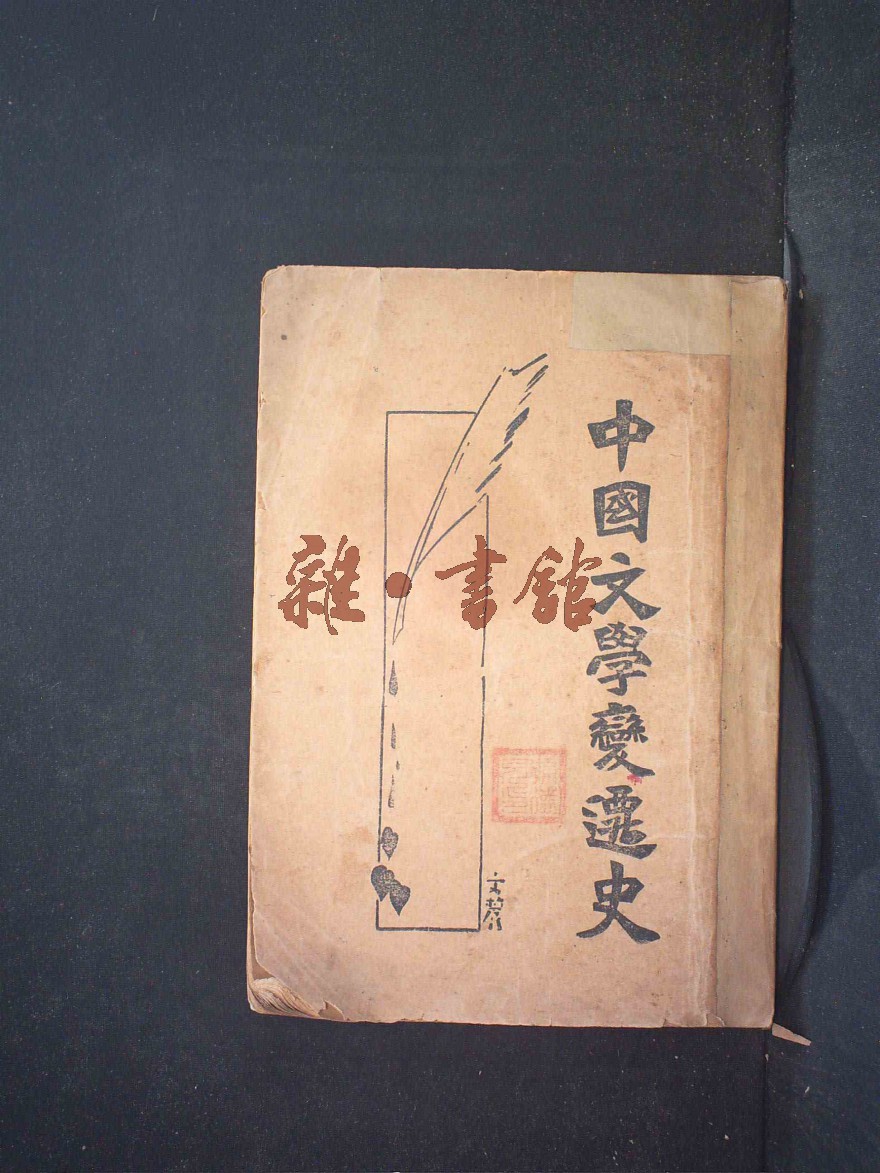 中國文學變遷史
雜·書館